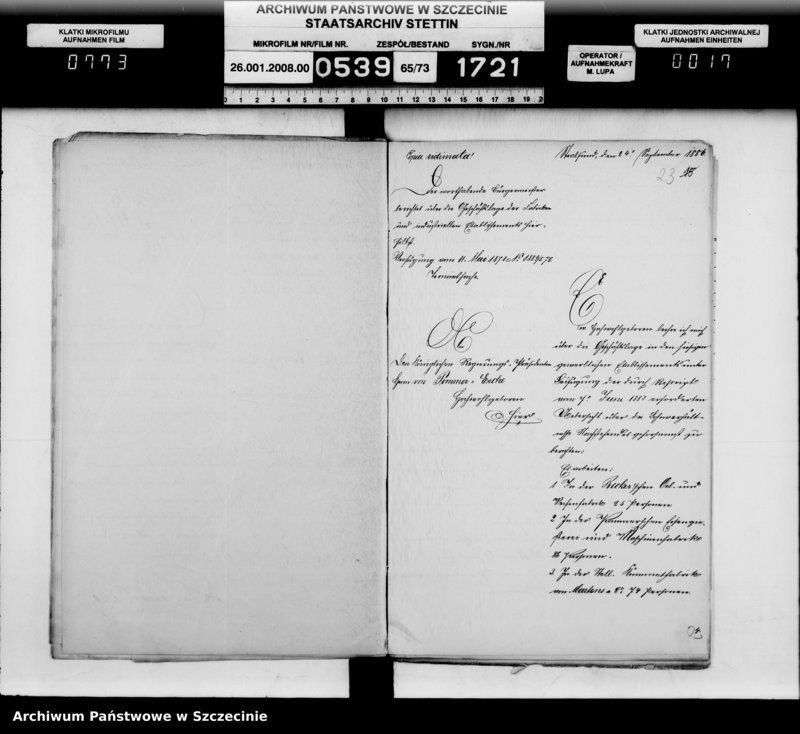 ARCHIWUM PAŃSTWOWE W SZCZECINIE
STAATSARCHIV STETTIN
KLATKI MIKROFILMU
AUFNAHMEN FILM
0773
MIKROFILM NR/FILM NR.
ZESPÓŁ/BESTAND
SYGN./NR
26.001.2008.00
0539
65/73
1721
OPERATOR /
AUFNAHMEKRAFT
M. LUPA
KLATKI JEDNOSTKI ARCHIWALNEJ
AUFNAHMEN EINHEITEN
0017
0 1 2 3 4 5 6 7 8 9 10 11 12 13 14 15 16 17 18 19 20
Stralsund, den 24. September 1886
23
Der worthabende Bürgermeister
berichtet über die Geschäftslage der Fabriken
und industriellen Etablissements hier-
selbst.
Verfügung vom 11. Mai
Terminalsache.
An
Den Königlichen Regierungs-Präsidenten
Herrn von Pommer-Esche
Hochwohlgeboren
Hier
Ew. Hochwohlgeboren beehre ich mich
über die Geschäftslage in den hiesigen
gewerblichen Etablissements unter
Beifügung der durch Rescript
vom Juni erforderten
Uebersicht über die Lohnverhält-
nisse Nachstehendes gehorsamst zu
berichten:
Es arbeiten:
1. In der Becker'schen Oel- und
Seifenfabrik 25 Personen
2. In der Eisengie-
ßerei und Maschinenfabrik
Personen.
3. In der
von 74 Personen.
Archiwum Państwowe w Szczecinie